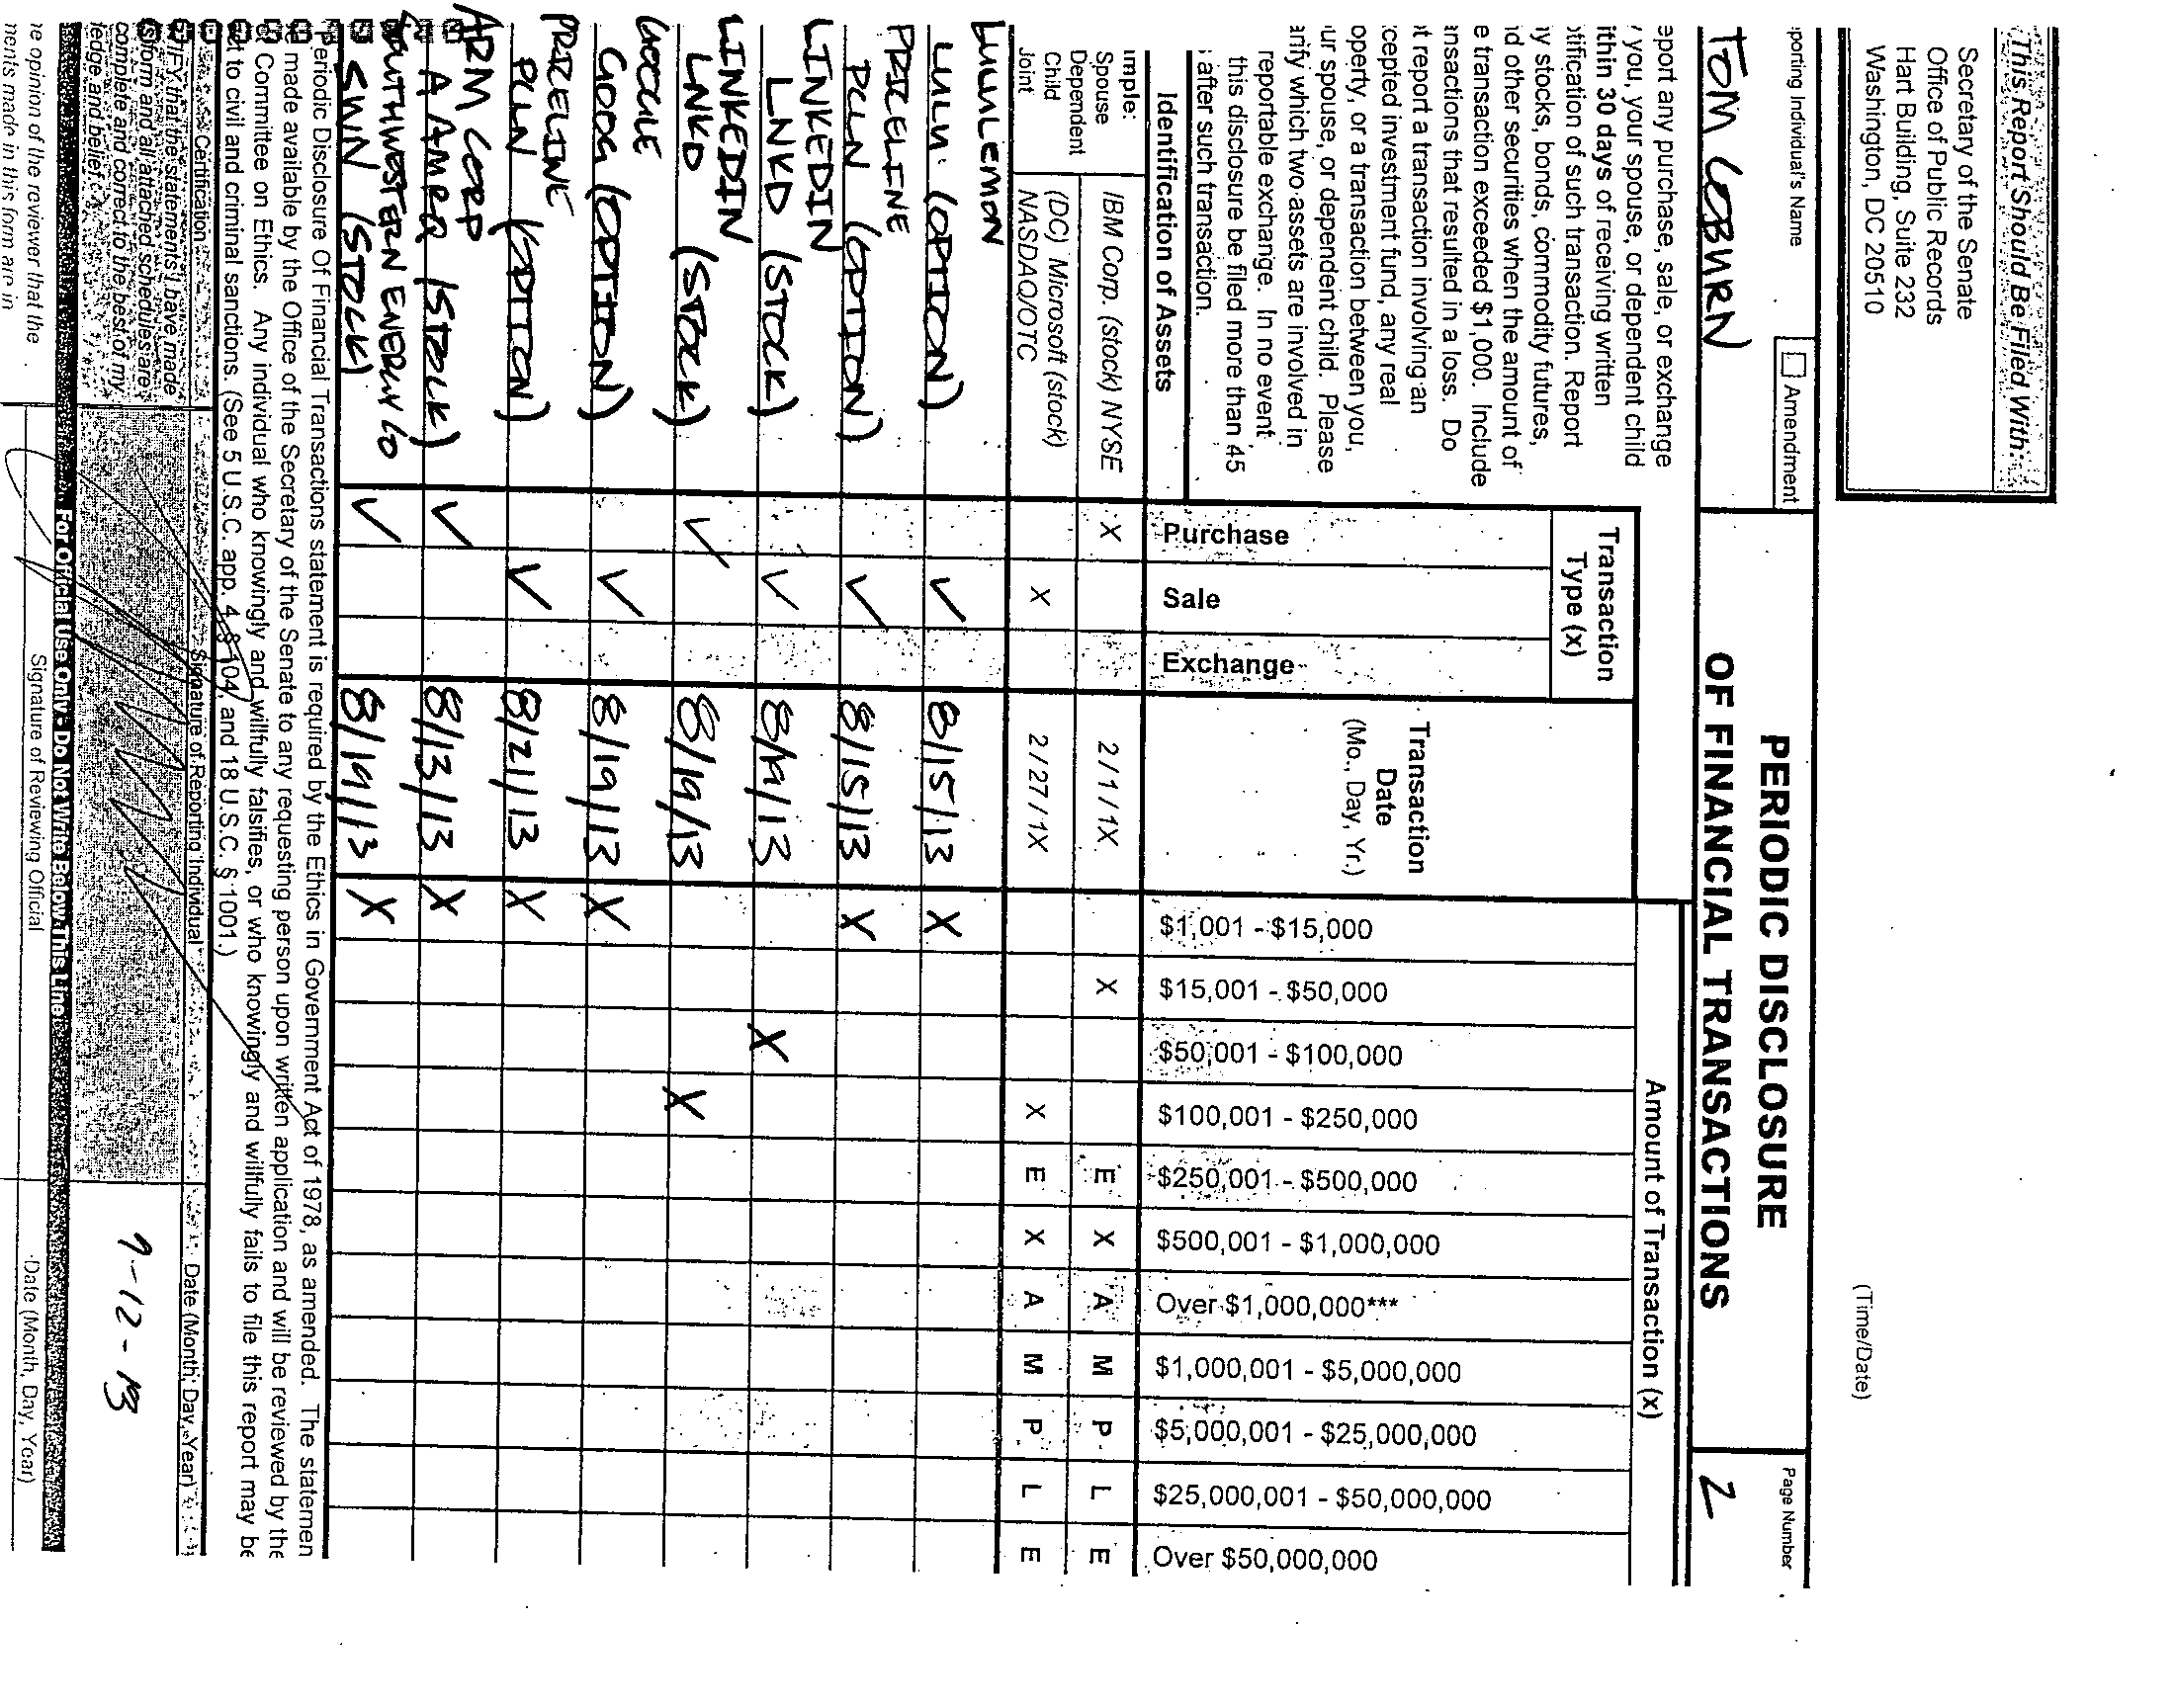 This Report Should Be Filed With:
Secretary of the Senate
Office of Public Records
Hart Building, Suite 232
Washington, DC 20510
(Time/Date)
porting Individual's Name
Amendment
TOM COBURN
PERIODIC DISCLOSURE
OF FINANCIAL TRANSACTIONS
Page Number
2
eport any purchase, sale, or exchange
you, your spouse, or dependent child
ithin 30 days of receiving written
otification of such transaction. Report
ny stocks, bonds, commodity futures,
nd other securities when the amount of
e transaction exceeded $1,000. Include
ansactions that resulted in a loss. Do
ot report a transaction involving an
cepted investment fund, any real
operty, or a transaction between you,
ur spouse, or dependent child. Please
arify which two assets are involved in
reportable exchange. In no event
this disclosure be filed more than 45
after such transaction.
Identification of Assets
Transaction
Type (x)
Purchase
Sale
Exchange
Transaction
Date
(Mo., Day, Yr.)
Amount of Transaction (x)
$1,001 - $15,000
$15,001 - $50,000
$50,001 - $100,000
$100,001 - $250,000
$250,001 - $500,000
$500,001 - $1,000,000
Over $1,000,000***
$1,000,001 - $5,000,000
$5,000,001 - $25,000,000
$25,000,001 - $50,000,000
Over $50,000,000
mple:
Spouse
Dependent
Child
Joint
IBM Corp. (stock) NYSE X 2/1/1X X E X A M P L E
(DC) Microsoft (stock)
NASDAQ/OTC X 2/27/1X X E X A M P L E
LULULEMON
LULU (OPTION) ✓ 8/15/13 X
PRICELINE
PCLN (OPTION) ✓ 8/15/13 X
LINKEDIN
LNKD (STOCK) ✓ 8/19/13 X
LINKEDIN
LNKD (STOCK) ✓ 8/19/13 X
GOOGLE
GOOG (OPTION) ✓ 8/19/13 X
PRICELINE
PCLN (OPTION) ✓ 8/21/13 X
ARM CORP
(STOCK) ✓ 8/13/13 X
SOUTHWESTERN ENERGY CO
SWN (STOCK) ✓ 8/19/13 X
Periodic Disclosure Of Financial Transactions statement is required by the Ethics in Government Act of 1978, as amended. The statemen
made available by the Office of the Secretary of the Senate to any requesting person upon written application and will be reviewed by the
Committee on Ethics. Any individual who knowingly and willfully falsifies, or who knowingly and willfully fails to file this report may be
ct to civil and criminal sanctions. (See 5 U.S.C. app. 4, § 104, and 18 U.S.C. § 1001.)
Certification
Signature of Reporting Individual
Date (Month, Day, Year)
TIFY that the statements I have made
form and all attached schedules are
complete and correct to the best of my
ledge and belief.
9-12-13
For Official Use Only - Do Not Write Below This Line
he opinion of the reviewer that the
ments made in this form are in
Signature of Reviewing Official
Date (Month, Day, Year)